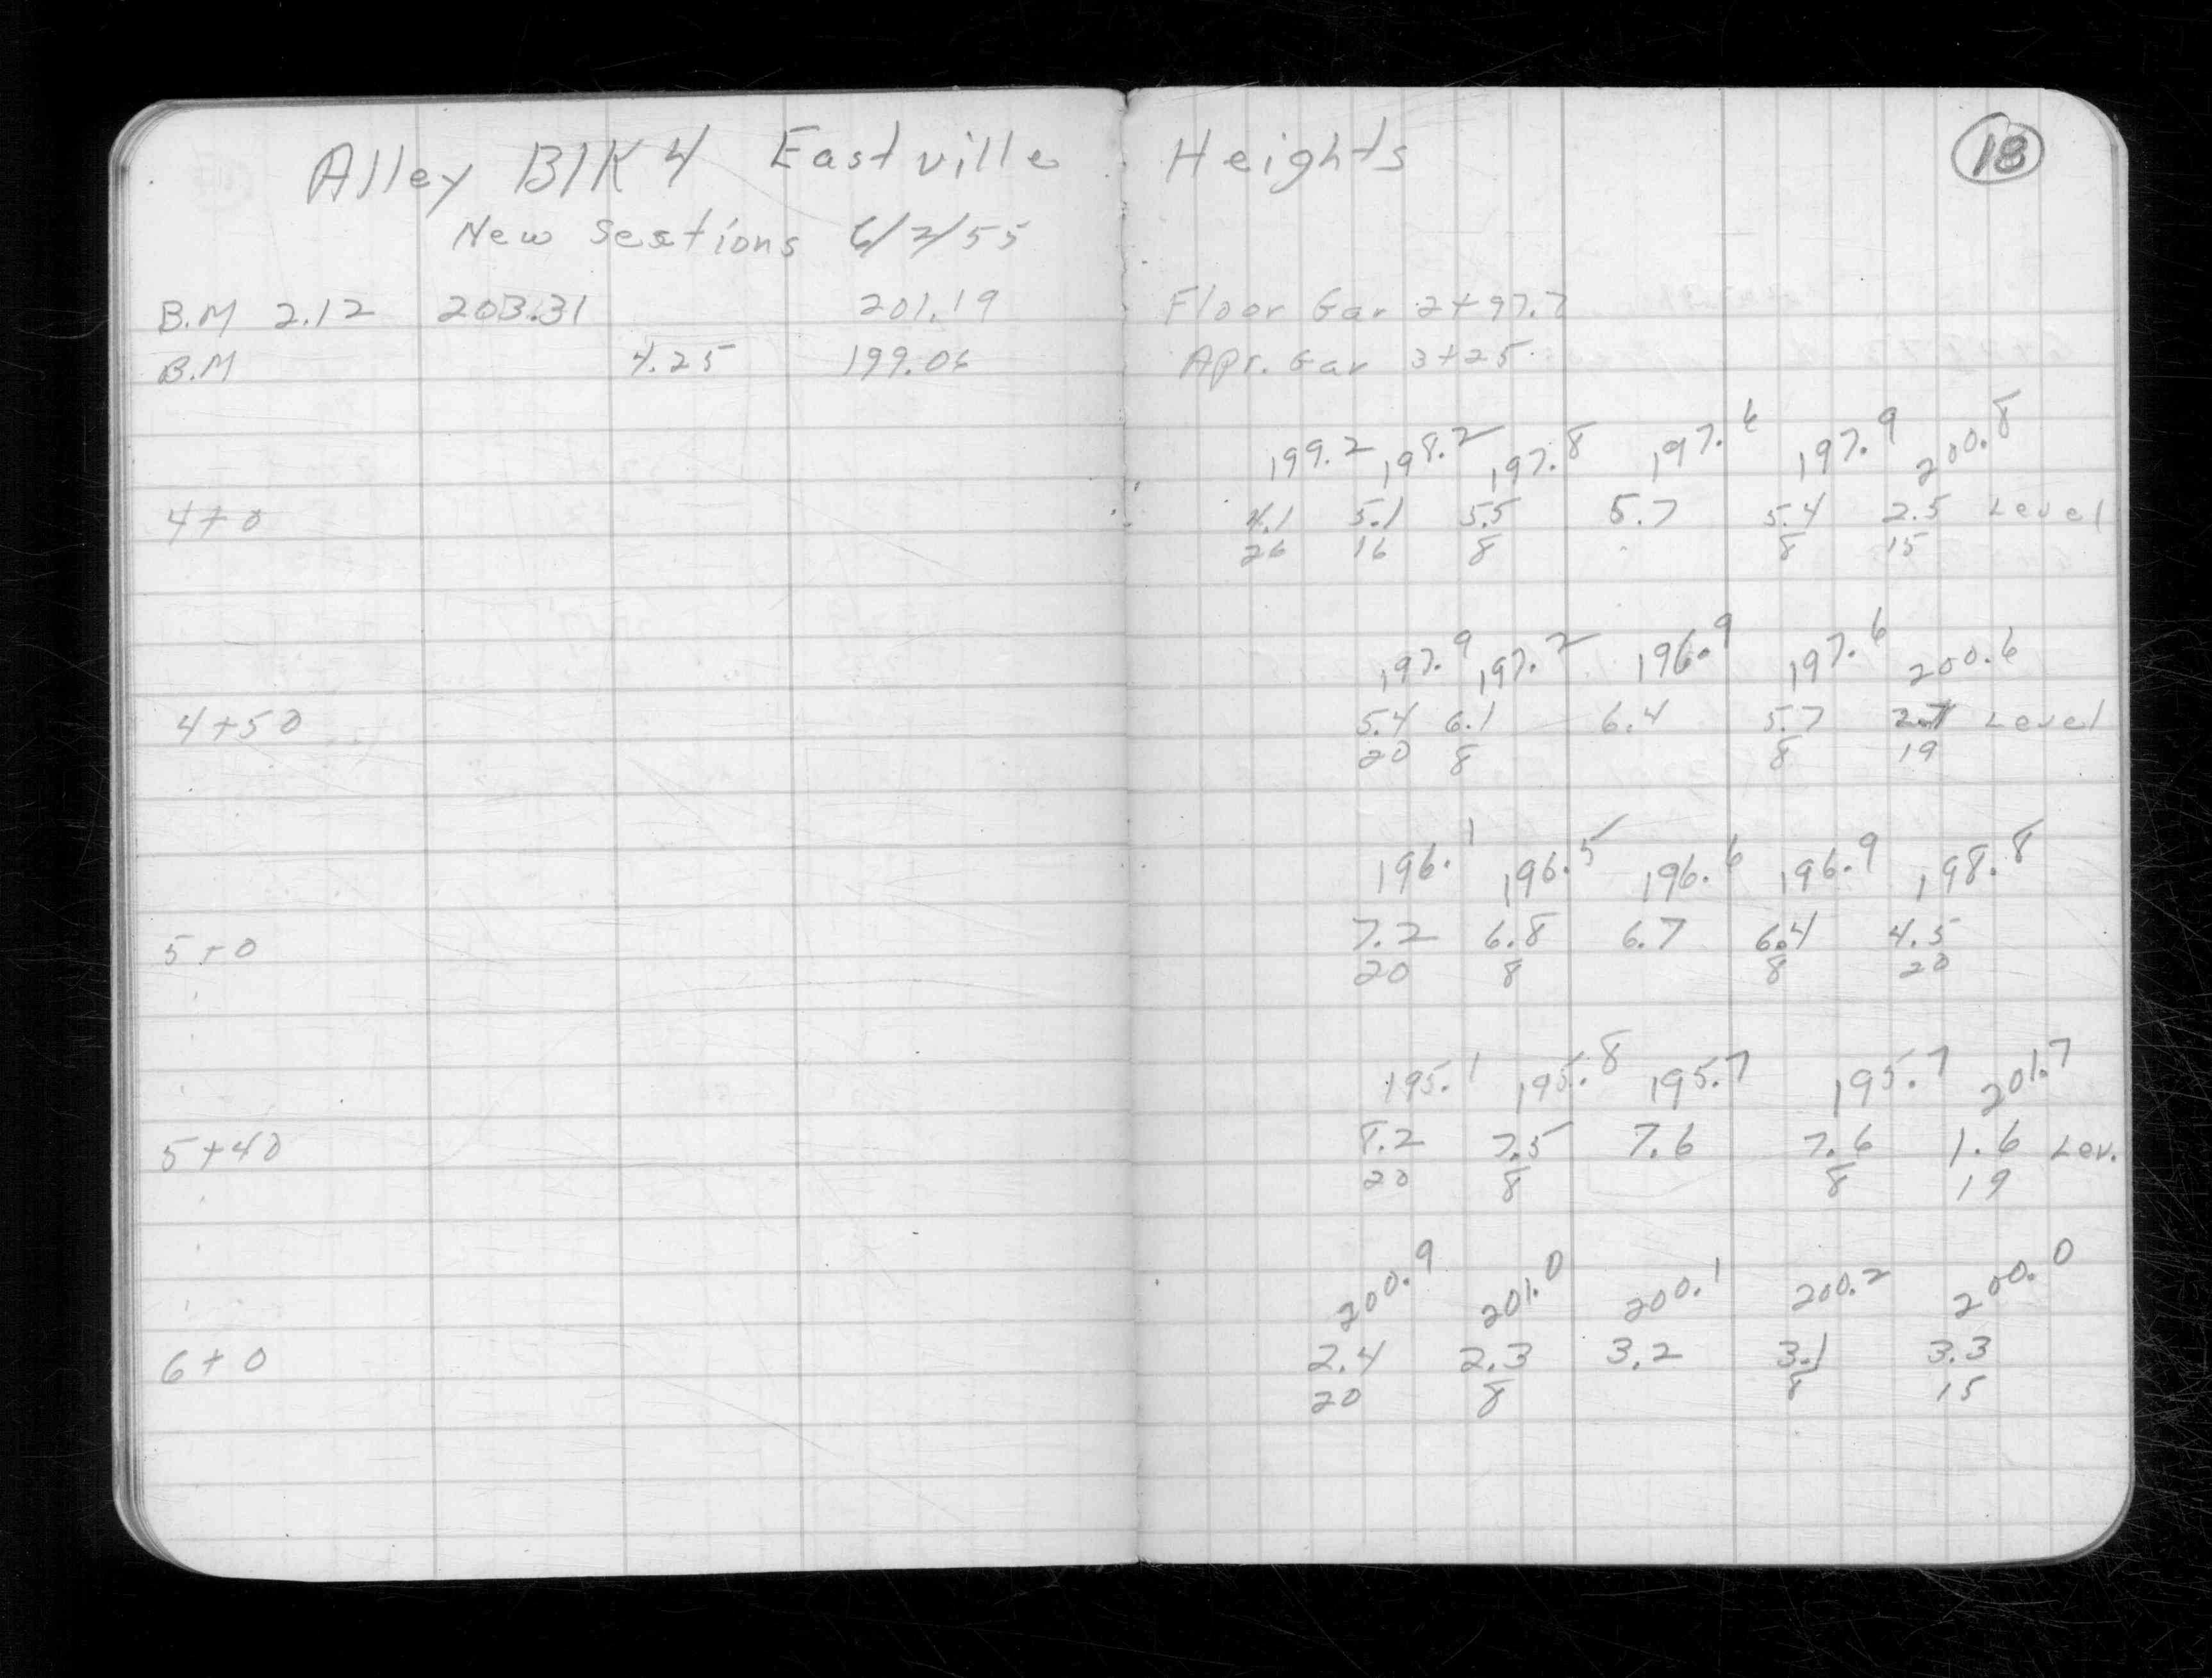 Alley Blk 4 Eastville Heights
18
New Sections 6/2/55
B.M 2.12 203.31 201.19 Floor Gar 2+97.7
B.M 4.25 199.06 Apr. Gar 3+25
199.2 198.2 197.8 197.6 197.9 200.8
4+0 4.1 5.1 5.5 5.7 5.4 2.5 Level
26 16 8 8 15
197.9 197.2 196.9 197.6 200.6
4+50 5.4 6.1 6.4 5.7 2.7 Level
20 8 8 19
196.1 196.5 196.6 196.9 198.8
5+0 7.2 6.8 6.7 6.4 4.5
20 8 8 20
195.1 195.8 195.7 195.7 201.7
5+40 8.2 7.5 7.6 7.6 1.6 Lev.
20 8 8 19
200.9 201.0 200.1 200.2 200.0
6+0 2.4 2.3 3.2 3.1 3.3
20 8 8 15